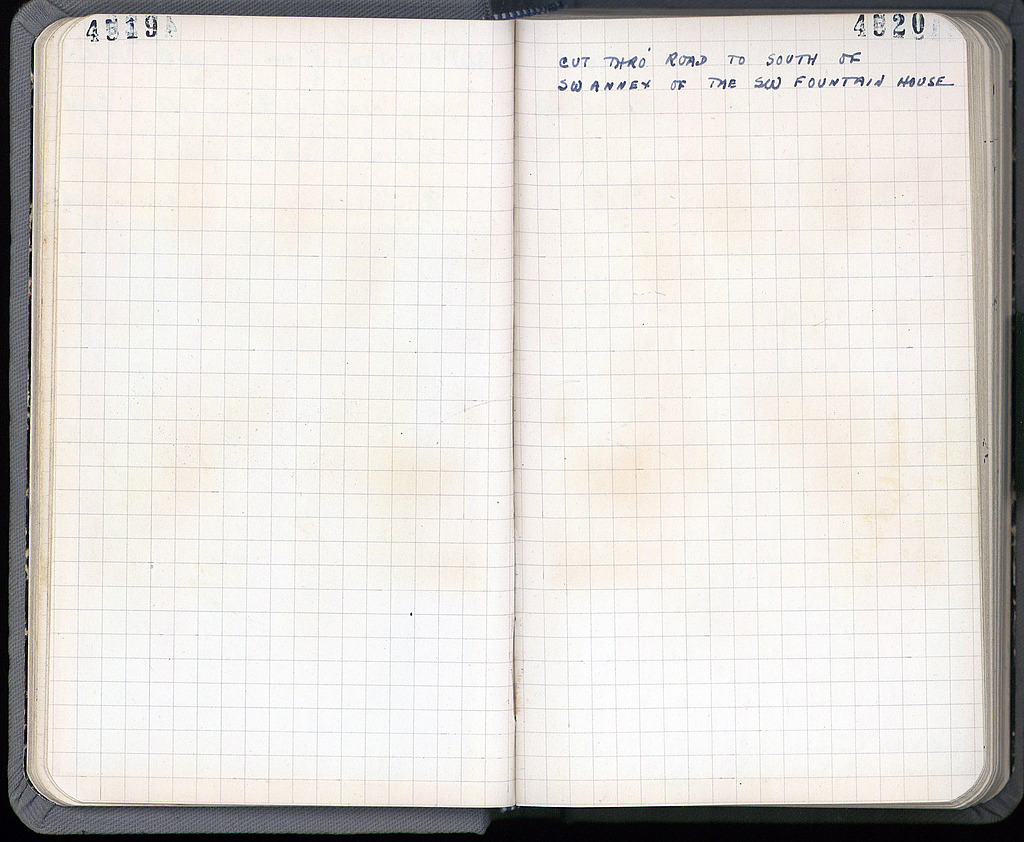 4819
4820
CUT THRO' ROAD TO SOUTH OF
SW ANNEX OF THE SW FOUNTAIN HOUSE